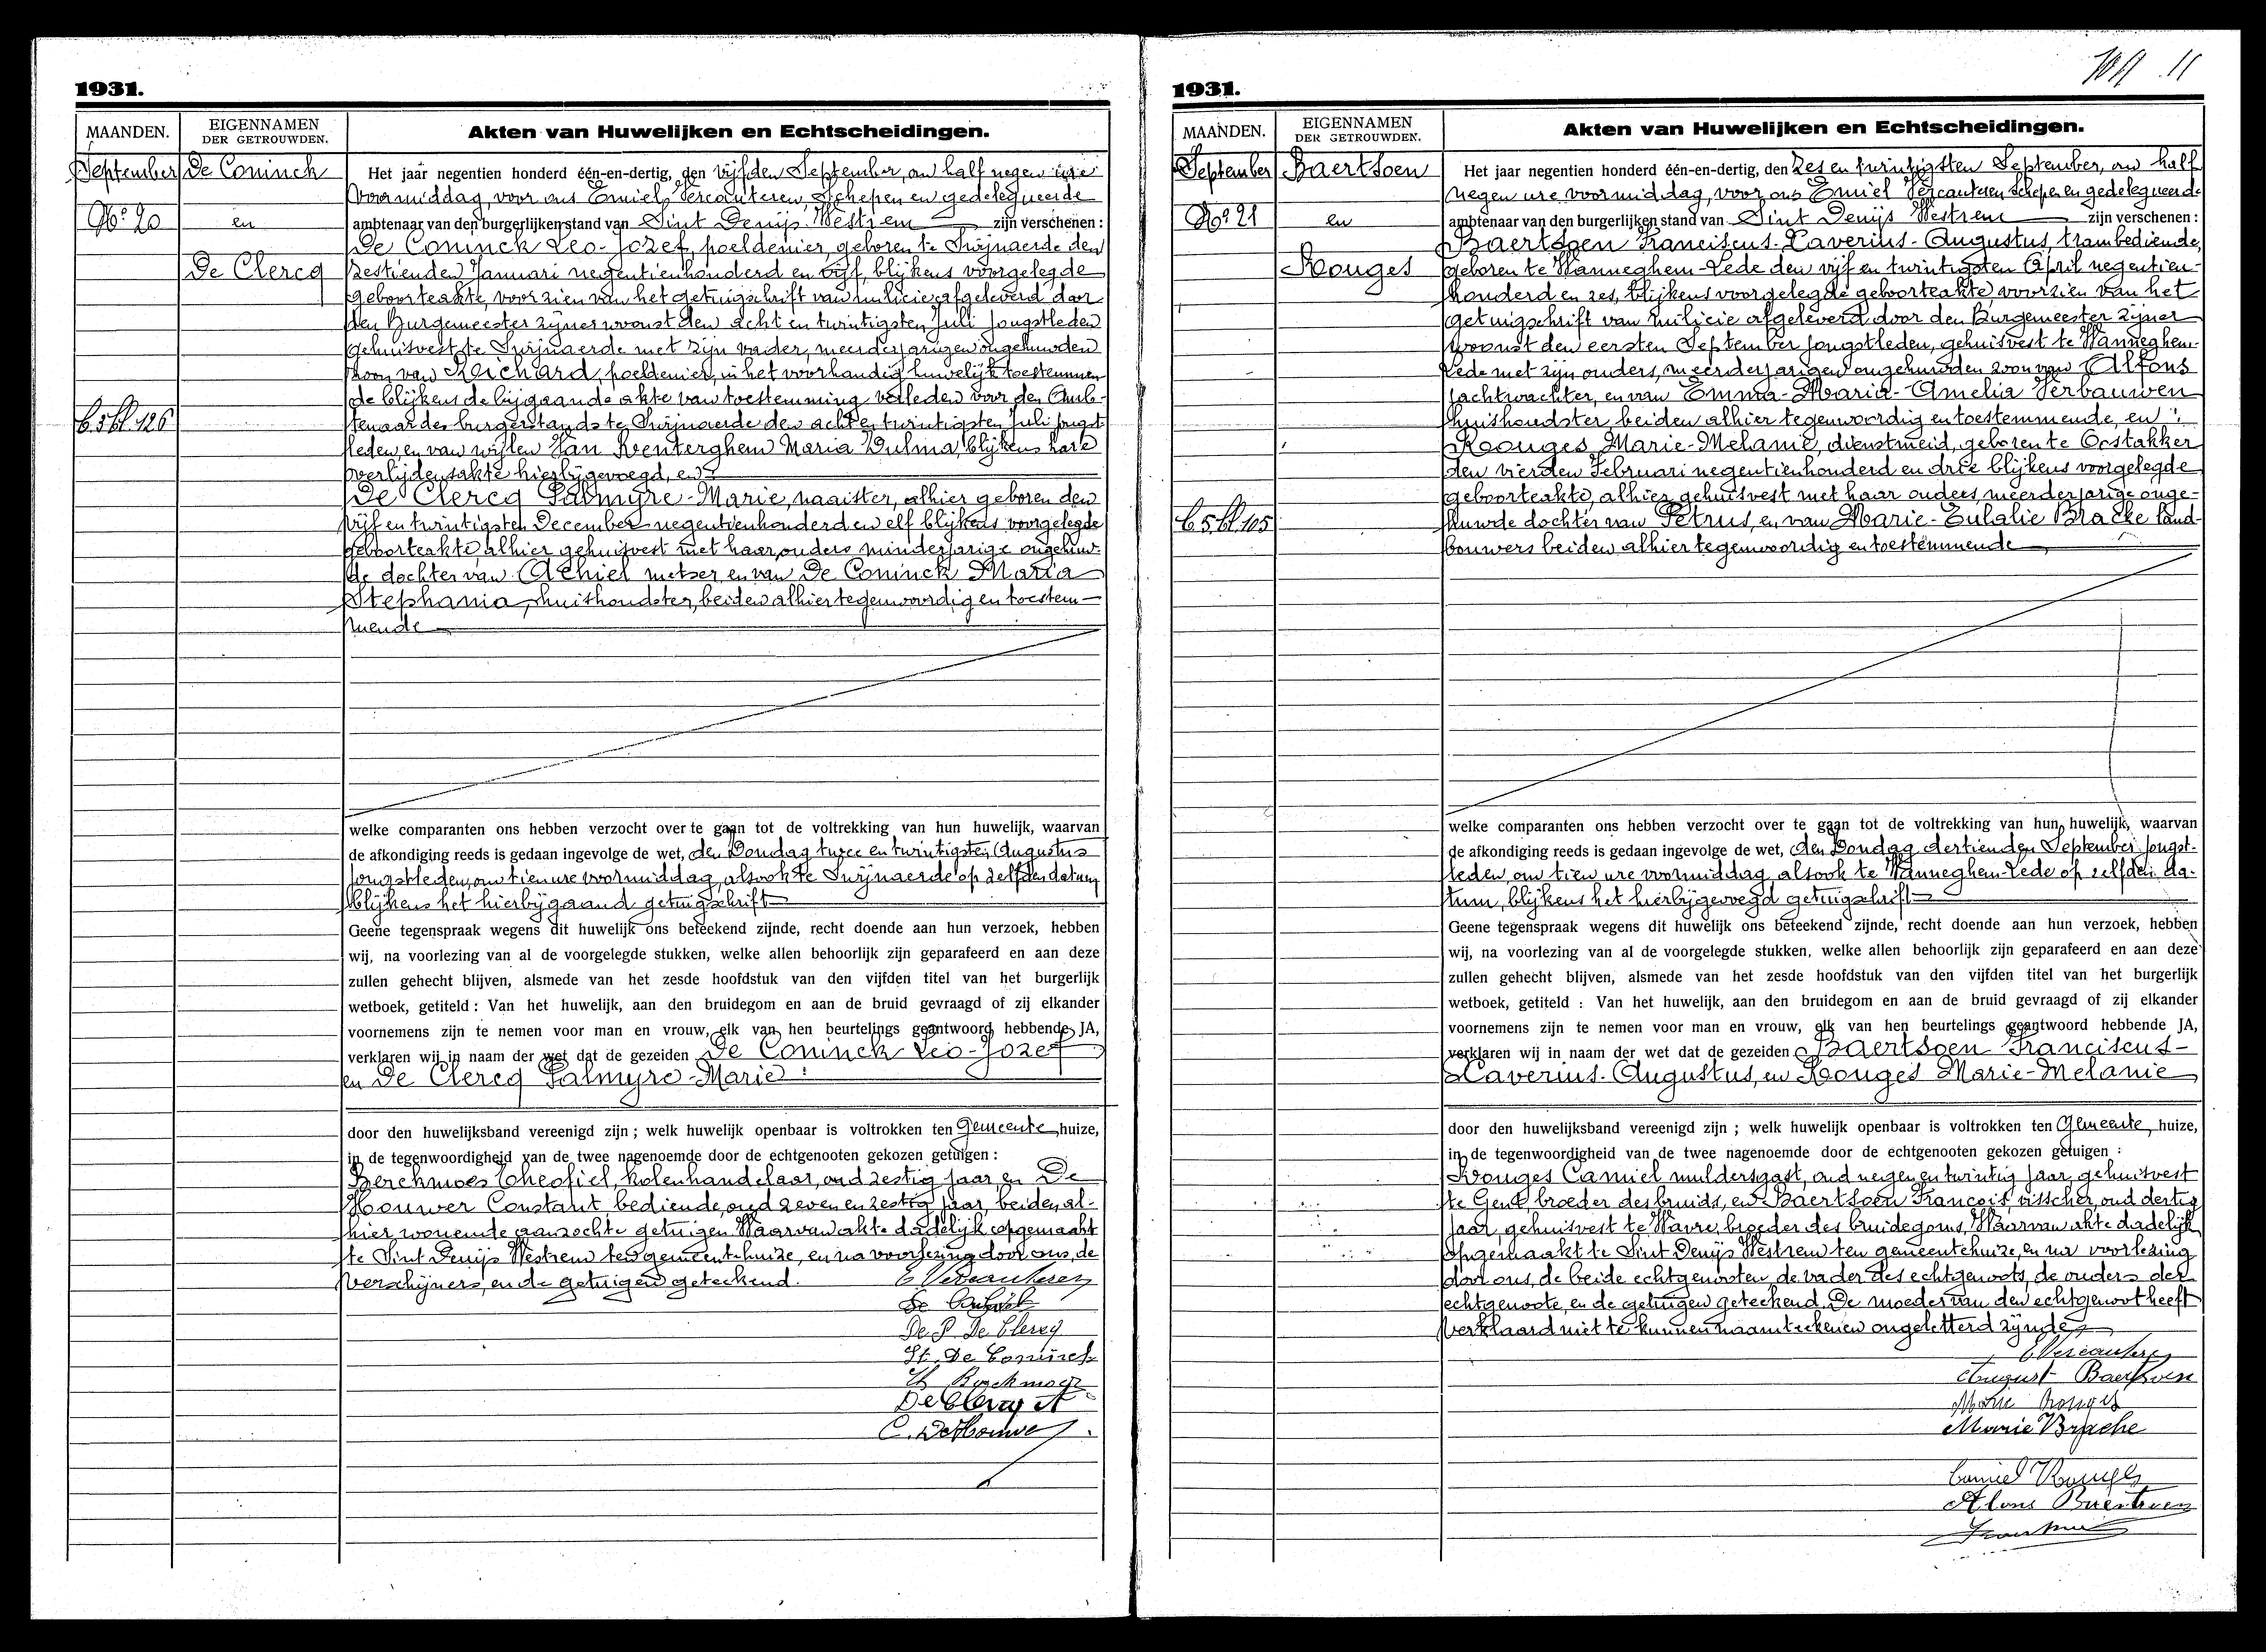 1931.
MAANDEN.
EIGENNAMEN
DER GETROUWDEN.
Akten van Huwelijken en Echtscheidingen.
September
No 20
B.5 bl. 126
De Coninck
en
De Clercq
Het jaar negentien honderd één-en-dertig, den vijfden September, om half negen ure
voormiddag, voor ons Emiel Vercauteren, Schepen en gedelegueerde
ambtenaar van den burgerlijken stand van Sint Denijs Westrem zijn verschenen :
De Coninck Leo-Jozef, poeldenier, geboren te Swijnaerde den
zestienden Januari negentienhonderd en vijf, blijkens voorgelegde
geboorteakte, voorzien van het getuigschrift van milicie afgeleverd door
den Burgemeester zijner woonst den acht en twintigsten Juli jongstleden
gehuisvest te Swijnaerde met zijn vader, meerderjarigen ongehuwden
zoon van Reichard, poeldenier, in het voorhandig huwelijk toestemmen
de blijkens de bijgaande akte van toestemming verleden voor den Amb-
tenaar des burgerstands te Swijnaerde den acht en twintigsten Juli jongst-
leden, en van wijlen Van Renterghem Maria Vulma, blijkens hare
overlijdensakte hierbijgevoegd, en
De Clercq Palmyre-Marie, naaister, alhier geboren den
vijf en twintigsten December negentienhonderd en elf blijkens voorgelegde
geboorteakte, alhier gehuisvest met haar ouders minderjarige ongehuw-
de dochter van Achiel metser, en van De Coninck Maria
Stephania, huishoudster, beiden alhier tegenwoordig en toestem-
mende
welke comparanten ons hebben verzocht over te gaan tot de voltrekking van hun huwelijk, waarvan
de afkondiging reeds is gedaan ingevolge de wet, den Zondag twee en twintigsten Augustus
jongstleden, om tien ure voormiddag, alsook te Swijnaerde op zelfden datum
blijkens het hierbijgaand getuigschrift
Geene tegenspraak wegens dit huwelijk ons beteekend zijnde, recht doende aan hun verzoek, hebben
wij, na voorlezing van al de voorgelegde stukken, welke allen behoorlijk zijn geparafeerd en aan deze
zullen gehecht blijven, alsmede van het zesde hoofdstuk van den vijfden titel van het burgerlijk
wetboek, getiteld : Van het huwelijk, aan den bruidegom en aan de bruid gevraagd of zij elkander
voornemens zijn te nemen voor man en vrouw, elk van hen beurtelings geantwoord hebbende JA,
verklaren wij in naam der wet dat de gezeiden De Coninck Leo-Jozef
en De Clercq Palmyre-Marie :
door den huwelijksband vereenigd zijn ; welk huwelijk openbaar is voltrokken ten Gemeente huize,
in de tegenwoordigheid van de twee nagenoemde door de echtgenooten gekozen getuigen :
Berckmoes Theofiel, kolenhandelaar, oud zestig jaar, en De
Houwer Constant, bediende, oud zeven en zestig jaar, beiden al-
hier wonende aanzochte getuigen. Waarvan akte dadelijk opgemaakt
te Sint Denijs Westrem ten gemeentehuize, en na voorlezing door ons, de
verschijners, en de getuigen geteekend. E Vercauteren
De P De Clercq
St. De Coninck
Th Berckmoes
De Clercq A
C. De Houwer
1931.
11
MAANDEN.
EIGENNAMEN
DER GETROUWDEN.
Akten van Huwelijken en Echtscheidingen.
September
No 21
B 5. bl. 105
Baertsoen
en
Rouges
Het jaar negentien honderd één-en-dertig, den zes en twintigsten September, om half
negen ure voormiddag, voor ons Emiel Vercauteren Schepen en gedelegueerde
ambtenaar van den burgerlijken stand van Sint Denijs Westrem zijn verschenen :
Baertsoen Franciscus-Xaverius-Augustus, trambediende,
geboren te Wanneghem-Lede den vijf en twintigsten April negentien-
honderd en zes, blijkens voorgelegde geboorteakte, voorzien van het
getuigschrift van milicie afgeleverd door den Burgemeester zijner
woonst den eersten September jongstleden, gehuisvest te Wanneghem-
Lede met zijn ouders, meerderjarigen ongehuwden zoon van Alfons
jachtwachter, en van Emma-Maria-Amelia Verbauwen
huishoudster beiden alhier tegenwoordig en toestemmende, en :
Rouges Marie-Melanie, dienstmeid, geboren te Oostakker
den vierden Februari negentienhonderd en drie blijkens voorgelegde
geboorteakte, alhier gehuisvest met haar ouders, meerderjarige onge-
huwde dochter van Petrus, en van Marie-Eulalie Bracke land-
bouwers beiden alhier tegenwoordig en toestemmende
welke comparanten ons hebben verzocht over te gaan tot de voltrekking van hun huwelijk, waarvan
de afkondiging reeds is gedaan ingevolge de wet, den Zondag dertienden September jongst-
leden, om tien ure voormiddag, alsook te Wanneghem-Lede op zelfden da-
tum, blijkens het hierbijgevoegd getuigschrift
Geene tegenspraak wegens dit huwelijk ons beteekend zijnde, recht doende aan hun verzoek, hebben
wij, na voorlezing van al de voorgelegde stukken, welke allen behoorlijk zijn geparafeerd en aan deze
zullen gehecht blijven, alsmede van het zesde hoofdstuk van den vijfden titel van het burgerlijk
wetboek, getiteld : Van het huwelijk, aan den bruidegom en aan de bruid gevraagd of zij elkander
voornemens zijn te nemen voor man en vrouw, elk van hen beurtelings geantwoord hebbende JA,
verklaren wij in naam der wet dat de gezeiden Baertsoen Franciscus-
Xaverius-Augustus, en Rouges Marie-Melanie
door den huwelijksband vereenigd zijn ; welk huwelijk openbaar is voltrokken ten Gemeente huize,
in de tegenwoordigheid van de twee nagenoemde door de echtgenooten gekozen getuigen :
Rouges Camiel muldersgast, oud negen en twintig jaar, gehuisvest
te Gent, broeder des bruids, en Baertsoen François, visscher, oud dertig
jaar, gehuisvest te Wavre, broeder des bruidegoms, Waarvan akte dadelijk
opgemaakt te Sint Denijs Westrem ten gemeentehuize, en na voorlezing
door ons, de beide echtgenooten, de vader des echtgenoots, de ouders der
echtgenoote, en de getuigen geteekend. De moeder van den echtgenoot heeft
verklaard niet te kunnen naamteekenen ongeletterd zijnde
E Vercauteren
August Baertsoen
Marie Rouges
Marie Bracke
Camiel Rouges
Alfons Baertsoen